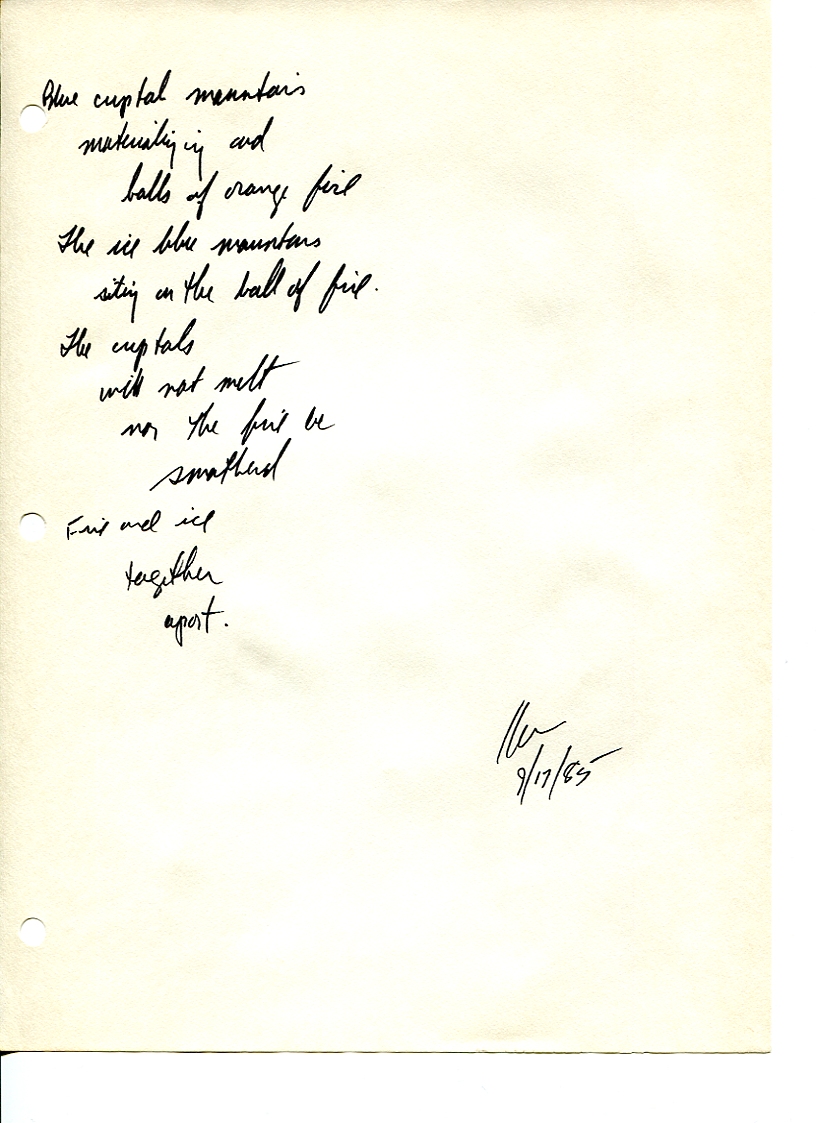 Blue crystal mountains
materializing and
balls of orange fire
The ice blue mountains
siting on the ball of fire.
The crystals
will not melt
nor the fire be
smotherd
Fire and ice
together
apart.
9/17/85